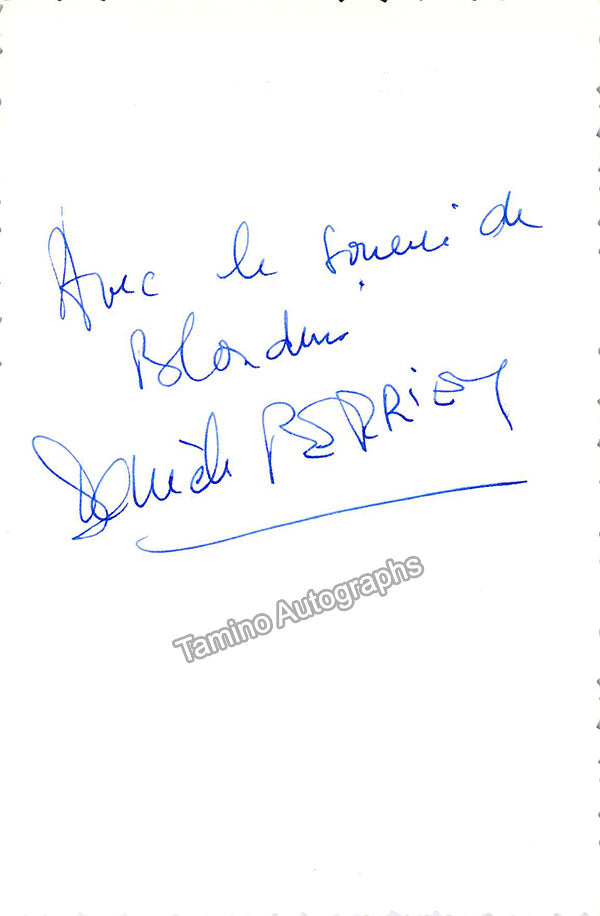 Avec le souvenir de
Blondine
Danièle PERRIERS
Tamino Autographs